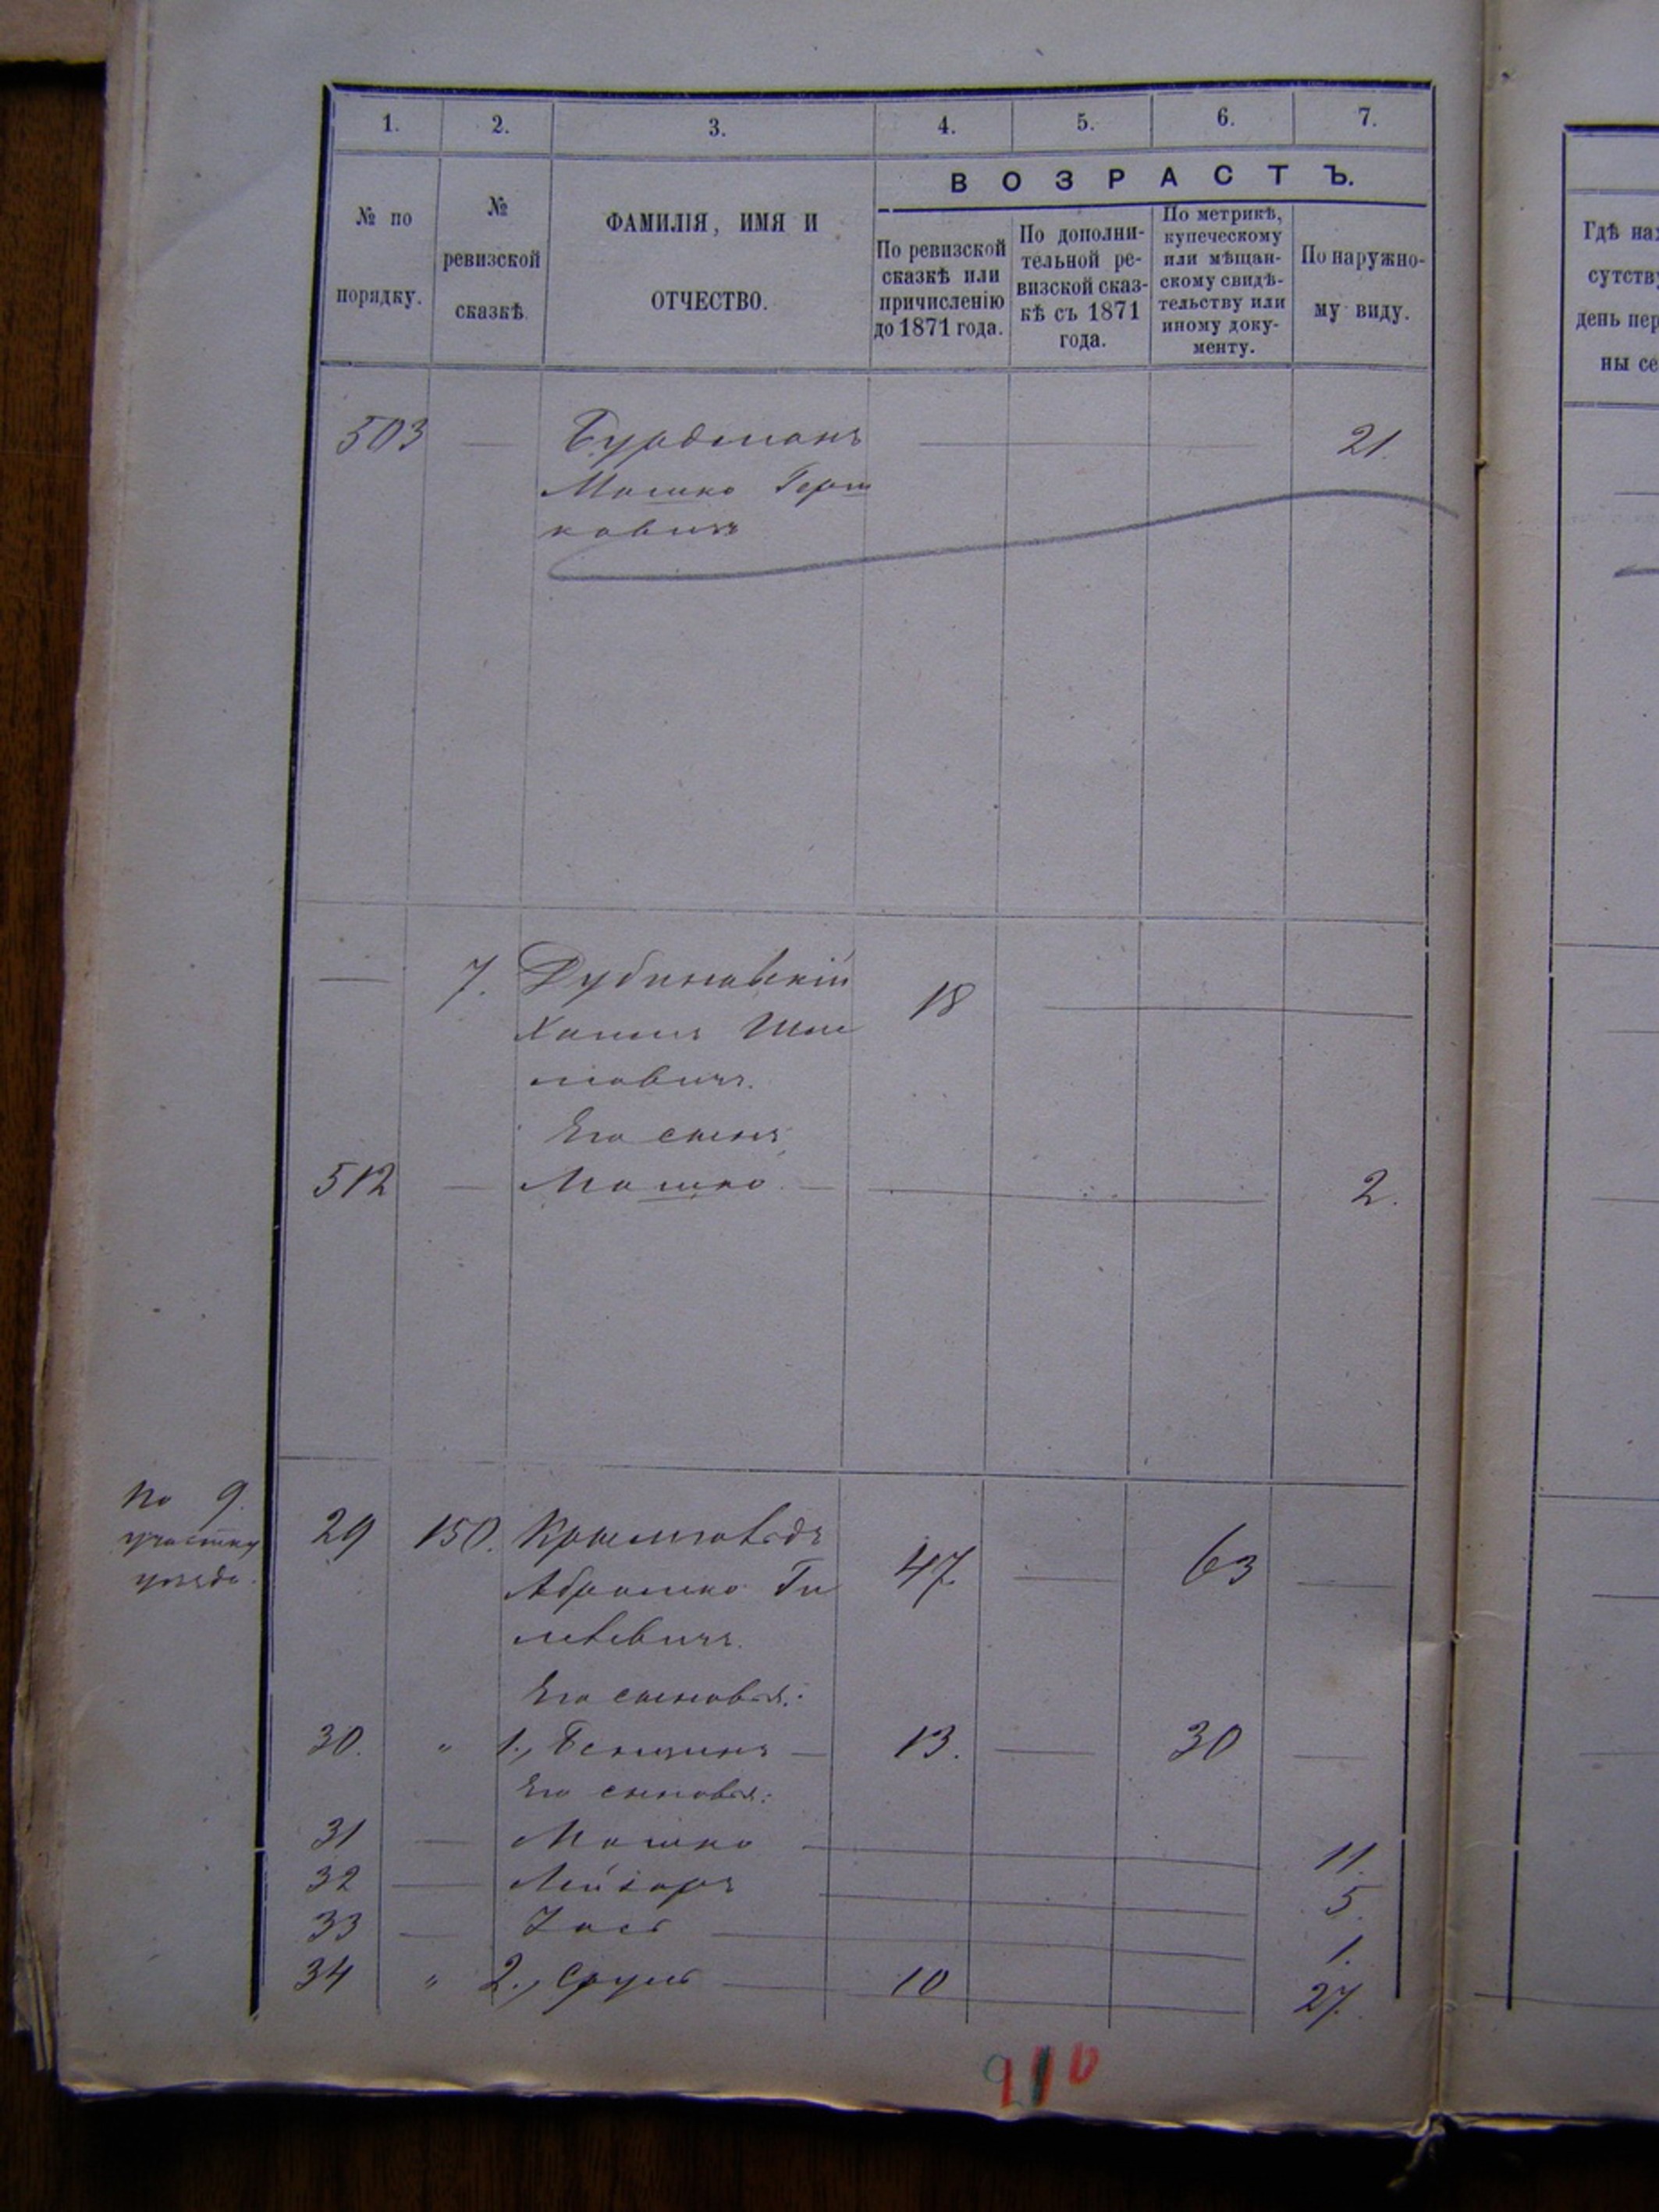 1. 2. 3. 4. 5. 6. 7.
ВОЗРАСТЪ.
№ по
порядку.
№
ревизской
сказкѣ.
ФАМИЛІЯ, ИМЯ И
ОТЧЕСТВО.
По ревизской
сказкѣ или
причисленію
до 1871 года.
По дополни-
тельной ре-
визской сказ-
кѣ съ 1871
года.
По метрикѣ,
купеческому
или мѣщан-
скому свидѣ-
тельству или
иному доку-
менту.
По наружно-
му виду.
503 — Бурдманъ — 21.
Мошко Герш
ковичъ
— 7. Дубиновскій 18 —
Хаимъ Шм
ловичъ.
Его сынъ,
512 — Мошко. — 2.
По 9.
участку
уѣзда.
29 150. 47. — 63 —
Абрамко Ги
левичъ.
Его сыновья:
30. " 1., Бенціинъ — 13. — 30 —
Его сыновья:
31 — Мошко — 11.
32 — Лейзаръ — 5.
33 — — 1.
34 " 2., Сруль — 10 — 27.
Гдѣ нах
сутству
день пер
ны се